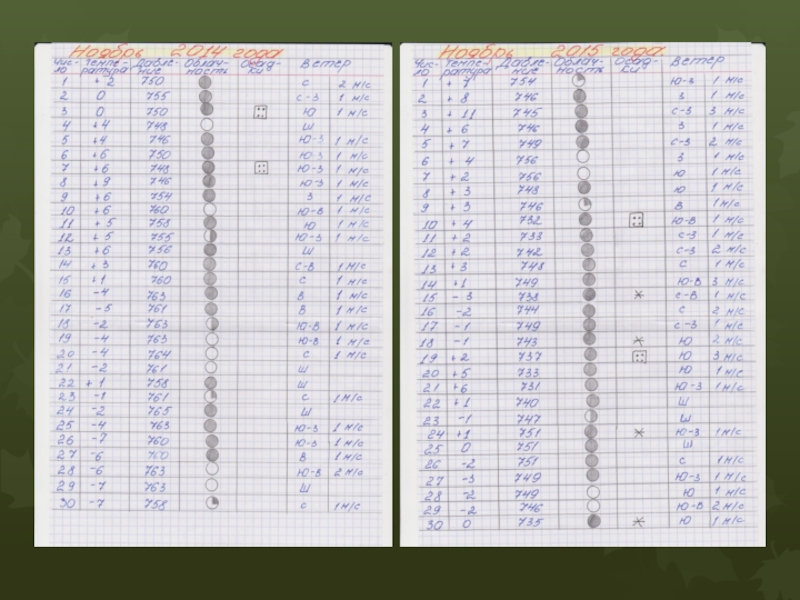 Ноябрь 2014 года
Чис- Темпе- Давле- Облач- Осад- Ветер
ло ратура ние ность ки
1 +2 750 С 2 м/с
2 0 755 С-З 1 м/с
3 0 750 Ю 1 м/с
4 +4 748 Ш
5 +4 746 Ю-З 1 м/с
6 +6 750 Ю-З 1 м/с
7 +6 748 Ю-З 1 м/с
8 +9 746 Ю-З 1 м/с
9 +6 754 З 1 м/с
10 +6 760 Ю-В 1 м/с
11 +5 758 Ю 1 м/с
12 +5 755 Ю-З 1 м/с
13 +6 756 Ш
14 +3 760 С-В 1 м/с
15 +1 760 С 1 м/с
16 -4 763 В 1 м/с
17 -5 761 В 1 м/с
18 -2 763 Ю-В 1 м/с
19 -4 763 Ю-В 1 м/с
20 -4 764 С 1 м/с
21 -2 761 Ш
22 +1 758 Ш
23 -1 761 С 1 м/с
24 -2 765 Ш
25 -4 763 Ю-З 1 м/с
26 -7 760 Ю-З 1 м/с
27 -6 760 В 1 м/с
28 -6 763 Ю-В 2 м/с
29 -7 763 Ш
30 -7 758 С 1 м/с
Ноябрь 2015 года
Чис- Темпе- Давле- Облач- Осад- Ветер
ло ратура ние ность ки
1 +7 754 Ю-З 1 м/с
2 +8 746 З 1 м/с
3 +11 745 С-З 3 м/с
4 +6 746 З 1 м/с
5 +7 749 С-З 2 м/с
6 +4 756 З 1 м/с
7 +2 756 Ю 1 м/с
8 +3 748 Ю 1 м/с
9 +3 746 В 1 м/с
10 +4 732 Ю-В 1 м/с
11 +2 733 С-З 1 м/с
12 +2 742 С-З 2 м/с
13 +3 748 С 1 м/с
14 +1 749 Ю-В 3 м/с
15 -3 738 С-В 1 м/с
16 -2 744 С 2 м/с
17 -1 749 С-З 1 м/с
18 -1 743 Ю 2 м/с
19 +2 737 Ю 3 м/с
20 +5 733 Ю 1 м/с
21 +6 731 Ю-З 1 м/с
22 +1 740 Ш
23 -1 747 Ш
24 +1 751 Ю-З 1 м/с
25 0 751 Ш
26 -2 751 С 1 м/с
27 -3 749 Ю-З 1 м/с
28 -2 749 Ю 1 м/с
29 -2 746 Ю-В 2 м/с
30 0 735 Ю 1 м/с